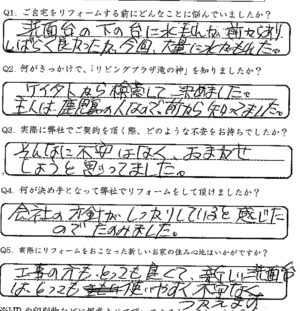 Q1. ご自宅をリフォームする前にどんなことに悩んでいましたか？
洗面台の下の台に水もれが前から有り
しばらく良かったが、今回、大量に水もれした。
Q2. 何がきっかけで、「リビングプラザ滝の神」を知りましたか？
ケイタイから検索して決めました。
主人は鹿児島の人なので、前から知ってました。
Q3. 実際に弊社でご契約を頂く際、どのような不安をお持ちでしたか？
そんなに不安はなく、おまかせ
しようと思ってました。
Q4. 何が決め手となって弊社でリフォームをして頂けましたか？
会社の方針がしっかりしていると感じた
のでたのみました。
Q5. 実際にリフォームをおこなった新しいお家の住み心地はいかがですか？
工事の方もとっても良くて、新しい洗面台
はとっても使いやすく不安なく
つかえます